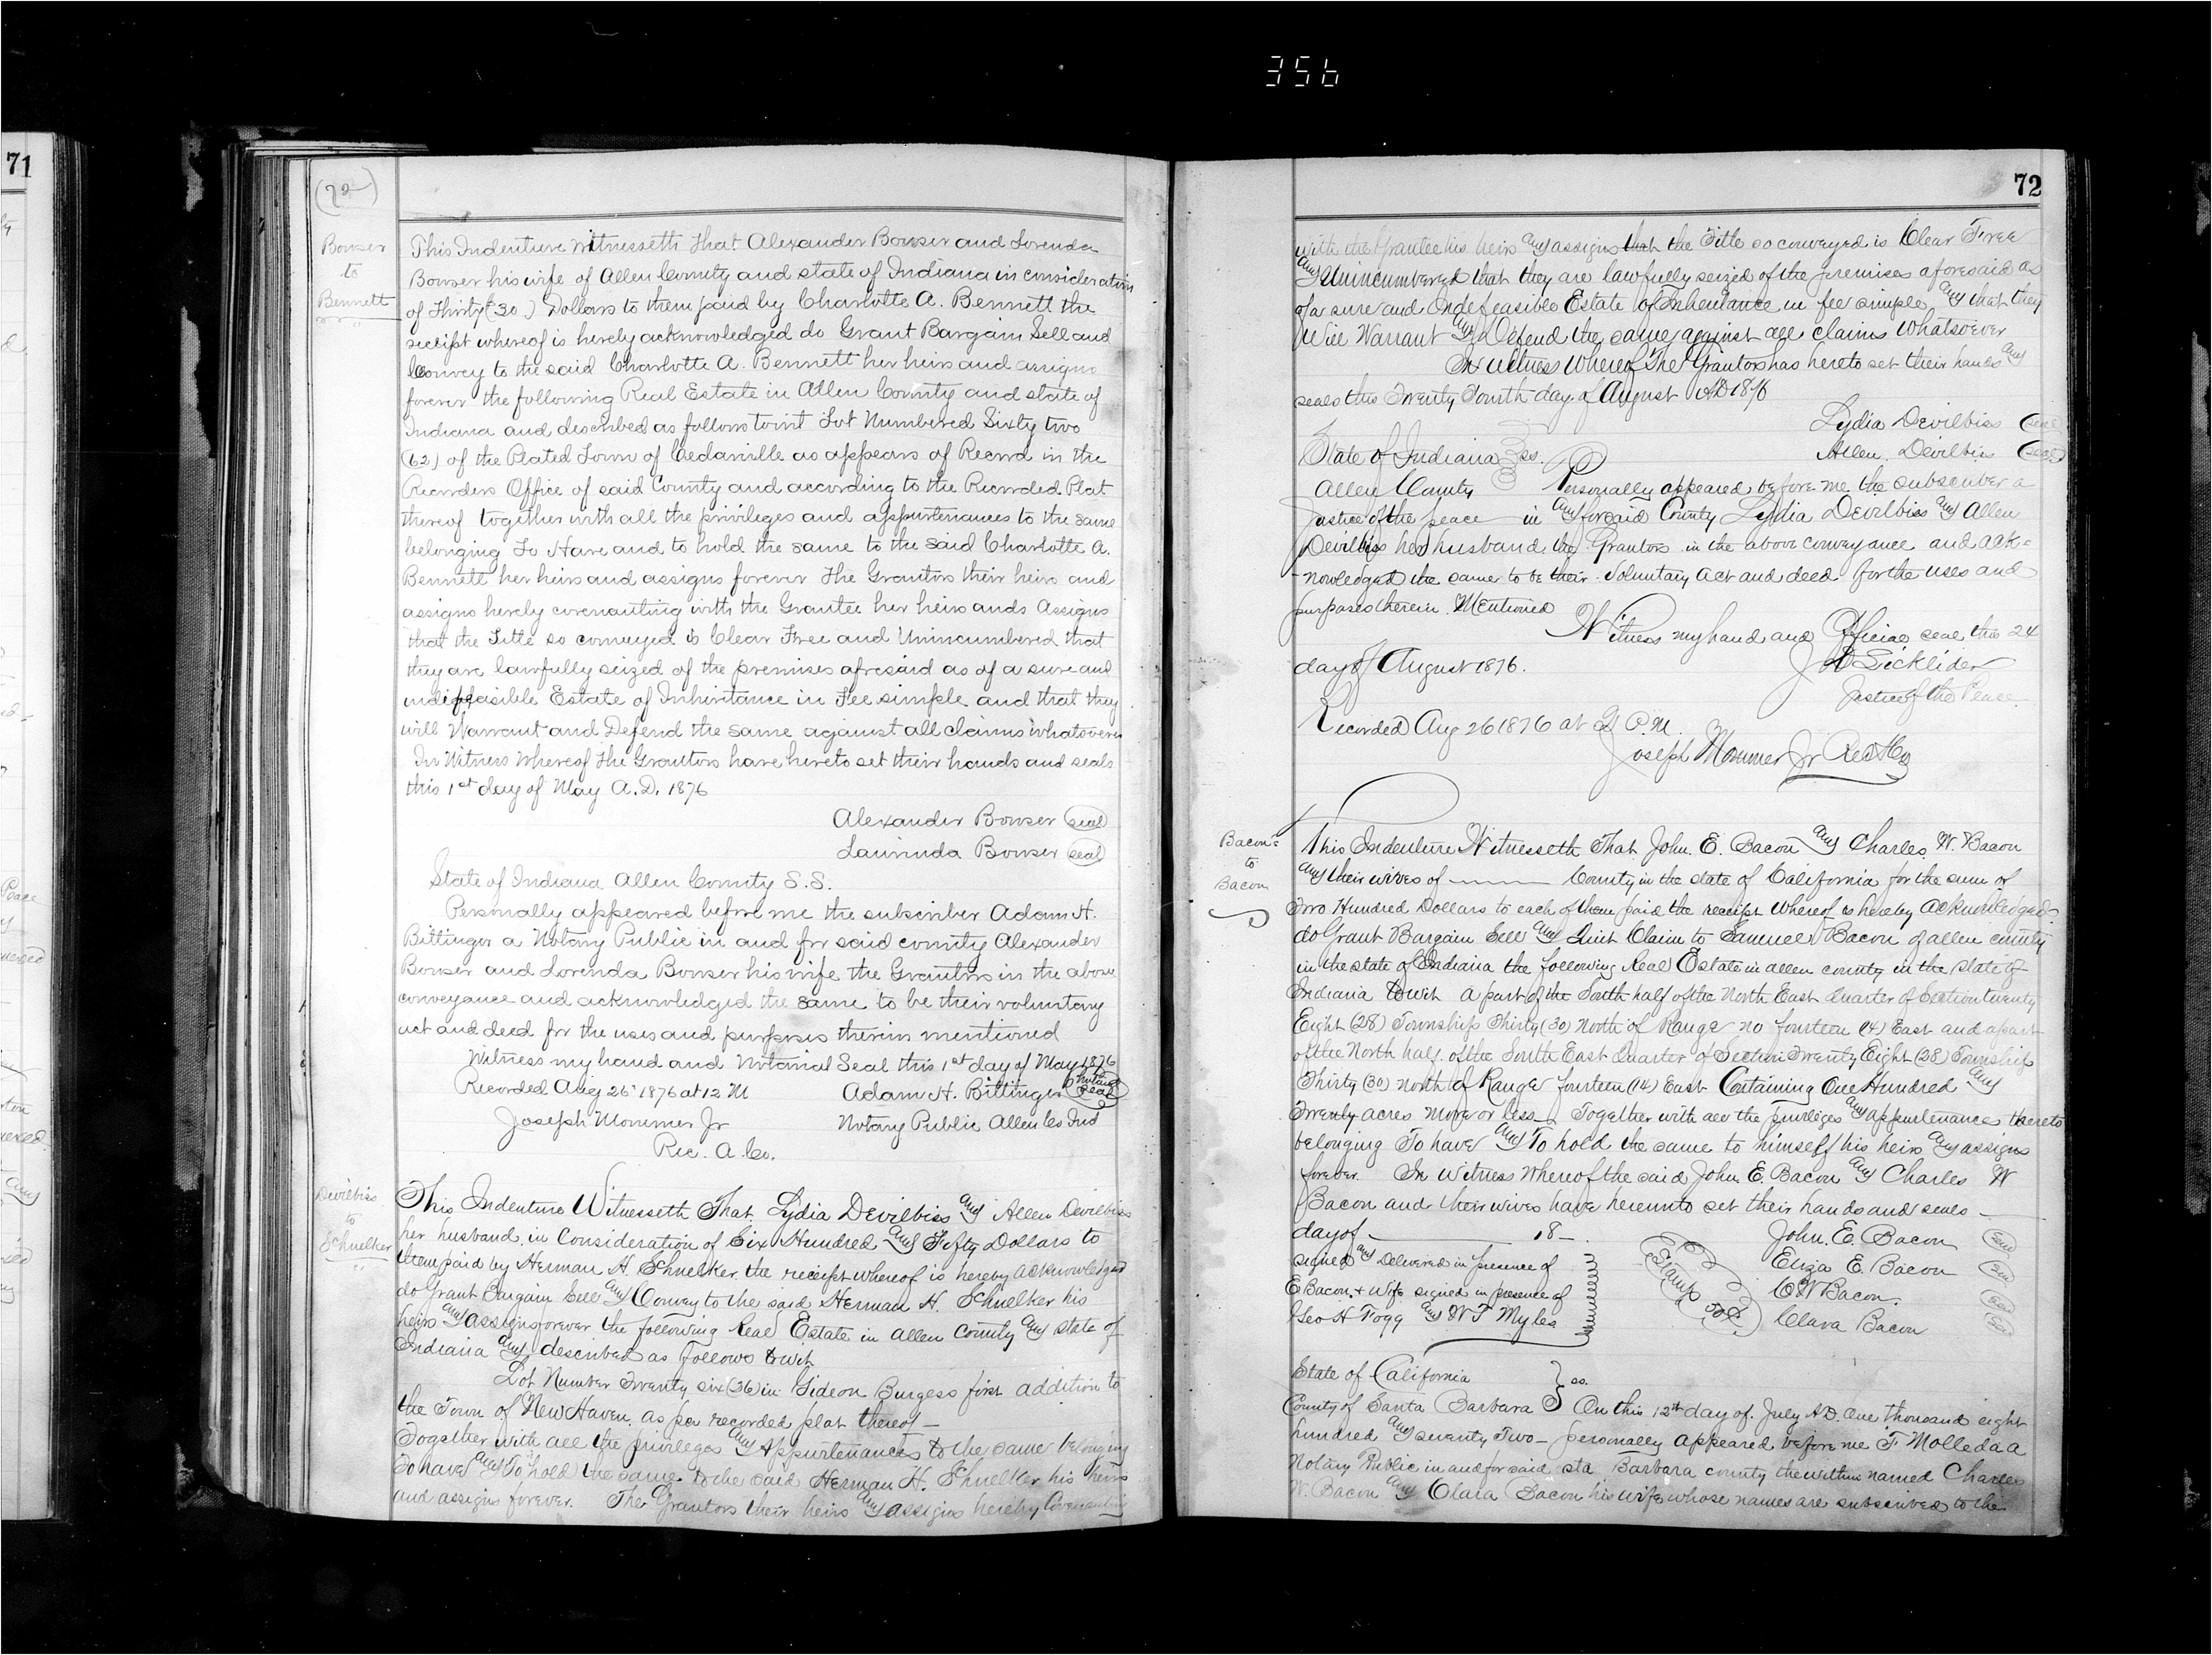 356
71
(72)
Bowser
to
Bennett
This Indenture Witnesseth That Alexander Bowser and Lorenda
Bowser his wife of Allen County and state of Indiana in consideration
of Thirty (30) Dollars to them paid by Charlotte A. Bennett the
receipt whereof is hereby acknowledged do Grant Bargain Sell and
Convey to the said Charlotte A. Bennett her heirs and assigns
forever the following Real Estate in Allen County and state of
Indiana and described as follows towit Lot Numbered Sixty two
(62) of the Plated Town of Cedarville as appears of Record in the
Recorders Office of said County and according to the Recorded Plat
thereof together with all the privileges and appurtenances to the same
belonging To Have and to hold the same to the said Charlotte A.
Bennett her heirs and assigns forever The Grantors their heirs and
assigns hereby covenanting with the Grantee her heirs ands Assigns
that the Title so conveyed is Clear Free and Unincumbered that
they are lawfully seized of the premises afresaid as of a sure and
indefeasible Estate of Inheritance in Fee simple and that they
will Warrant and Defend the same against all claims whatsoever
In Witness Whereof The Grantors have hereto set their hands and seals
this 1st day of May A.D. 1876
Alexander Bowser seal
Laurinda Bowser seal
State of Indiana Allen County S.S.
Personally appeared before me the subscriber Adam H.
Bittinger a Notary Public in and for said county Alexander
Bowser and Lorenda Bowser his wife the Grantors in the above
conveyance and acknowledged the same to be their voluntary
act and deed for the uses and purposes therein mentioned
Witness my hand and Notarial Seal this 1st day of May 1876
Recorded Aug 26 1876 at 12 M Adam H. Bittinger Notarial Seal
Joseph Mommer Jr Notary Public Allen Co Ind
Rec. A. Co.
Devilbiss
to
Schnelker
This Indenture Witnesseth That Lydia Devilbiss and Allen Devilbiss
her husband in Consideration of Six Hundred and Fifty Dollars to
them paid by Herman H. Schnelker the receipt whereof is hereby acknowledged
do Grant Bargain Sell and Convey to the said Herman H. Schnelker his
heirs and assigns forever the following Real Estate in Allen County and state of
Indiana and described as follows towit
Lot Number Twenty six (26) in Gideon Burgess first addition to
the Town of New Haven as per recorded plat thereof —
Together with all the privileges and Appurtenances to the same belonging
To have and To hold the same to the said Herman H. Schnelker his heirs
and assigns forever. The Grantors their heirs and assigns hereby Covenanting
72
with the Grantee his heirs and assigns that the Title so conveyed is Clear Free
and Unincumbered that they are lawfully seized of the premises aforesaid as
of a sure and Indefeasible Estate of Inheritance in fee simple and that they
Will Warrant and Defend the same against all claims Whatsoever
In Witness Whereof The Grantors has hereto set their hands and
seals this Twenty Fourth day of August AD 1876
Lydia Devilbiss seal
State of Indiana ss. Allen Devilbiss seal
Allen County Personally appeared before me the subscriber a
Justice of the peace in and for said County Lydia Devilbiss and Allen
Devilbiss her husband the Grantors in the above conveyance and ack=
-nowledged the same to be their voluntary act and deed for the uses and
purposes therein Mentioned
Witness my hand and Official seal this 24
day of August 1876.
Sicklider
Justice of the Peace
Recorded Aug 26 1876 at P.M.
Joseph Mommer Jr Rec A Co
Bacon
to
Bacon
This Indenture Witnesseth That John. E. Bacon and Charles. W. Bacon
and their wives of ——— County in the state of California for the sum of
Two Hundred Dollars to each of them paid the receipt whereof is hereby acknowledged
do Grant Bargain Sell and Quit Claim to Samuel Bacon of allen county
in the state of Indiana the following Real Estate in allen county in the state of
Indiana towit a part of the South half of the North East Quarter of Section twenty
Eight (28) Township Thirty (30) North of Range no fourteen (14) East and apart
of the North half of the South East Quarter of Section Twenty Eight (28) Township
Thirty (30) north of Range fourteen (14) East Containing One Hundred and
Twenty acres more or less — Together with all the privileges and appurtenances thereto
belonging To have and To hold the same to himself his heirs and assigns
forever. In Witness Whereof the said John E. Bacon and Charles W
Bacon and their wives have hereunto set their hands and seals —
day of ——— 18—. John. E. Bacon seal
signed and Delivered in presence of Eliza E. Bacon seal
E Bacon. + Wife signed in presence of Stamp 50c C W Bacon. seal
Geo H Fogg and W T Myles Clara Bacon seal
State of California
County of Santa Barbara ss. On this 12th day of July AD. One thousand eight
hundred and seventy Two — personally appeared before me F Molleda a
Notary Public in and for said Sta Barbara county the within named Charles
W. Bacon and Clara Bacon his wife whose names are subscribed to the